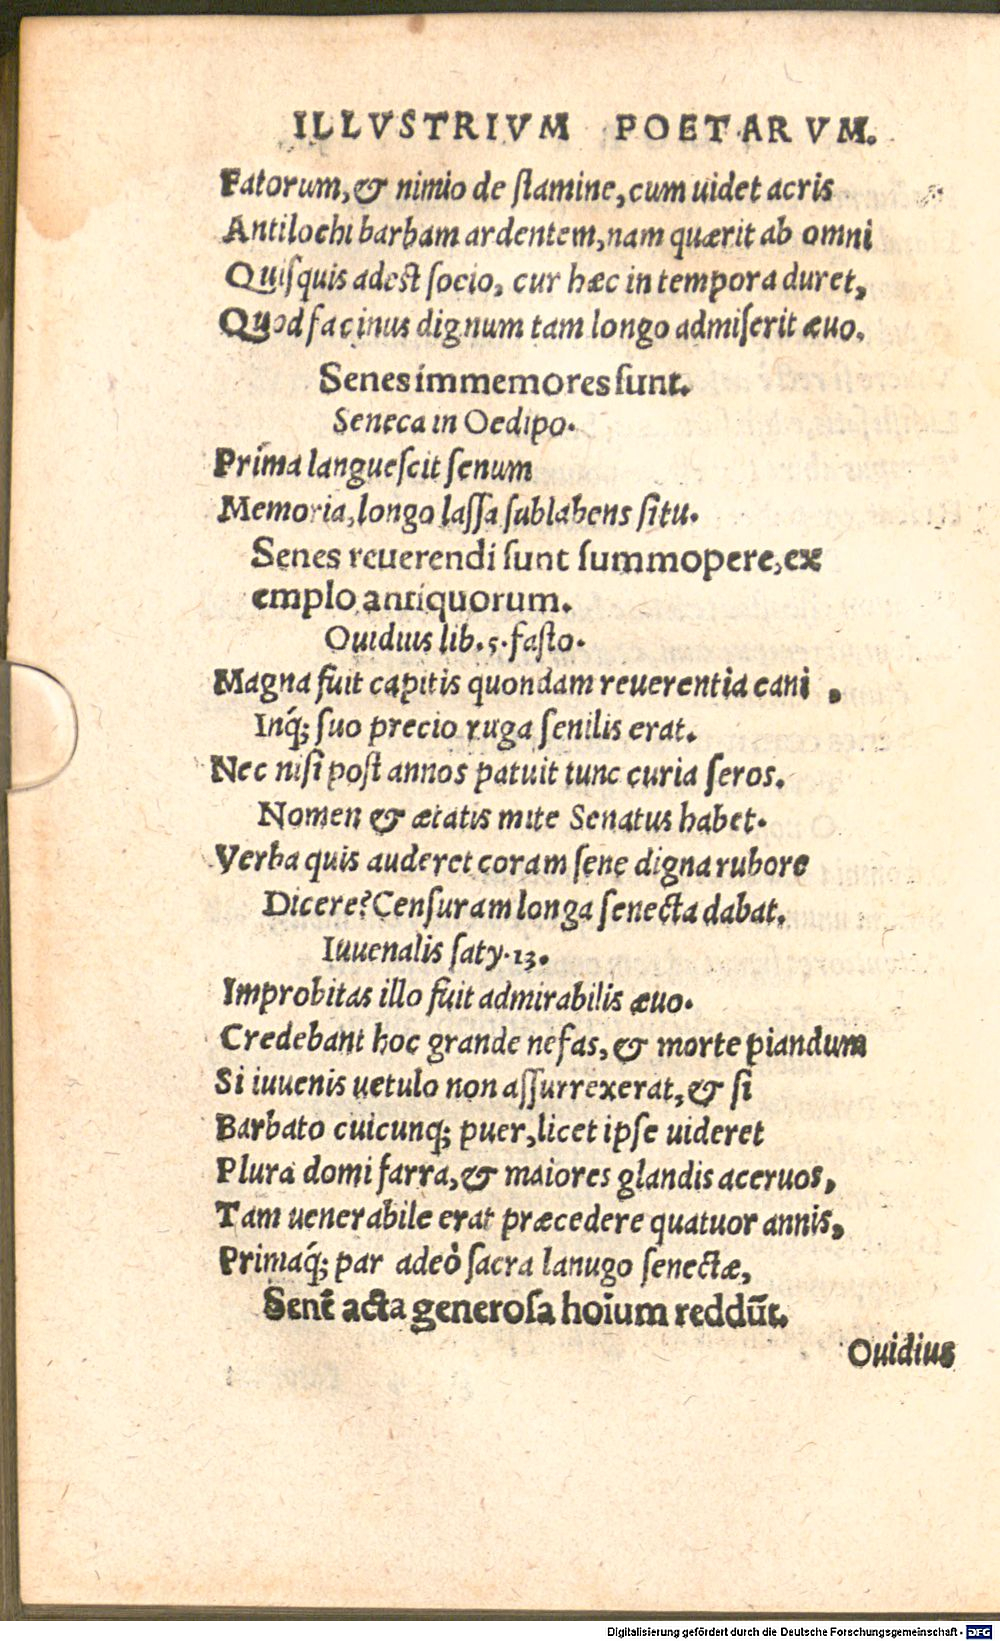 ILLVSTRIVM POETARVM.
Fatorum, & nimio de ſtamine, cum uidet acris
Antilochi barbam ardentem, nam quærit ab omni
Quiſquis adeſt ſocio, cur hæc in tempora duret,
Quod facinus dignum tam longo admiſerit æuo.
Senes immemores ſunt.
Seneca in Oedipo.
Prima langueſcit ſenum
Memoria, longo laſſa ſublabens ſitu.
Senes reuerendi ſunt ſummopere, ex
emplo antiquorum.
Ouidius lib. 5. faſto.
Magna fuit capitis quondam reuerentia cani,
Inq́; ſuo precio ruga ſenilis erat.
Nec niſi poſt annos patuit tunc curia ſeros.
Nomen & ætatis mite Senatus habet.
Verba quis auderet coram ſene digna rubore
Dicere? Cenſuram longa ſenecta dabat.
Iuuenalis ſaty. 13.
Improbitas illo fuit admirabilis æuo.
Credebant hoc grande nefas, & morte piandum
Si iuuenis uetulo non aſſurrexerat, & ſi
Barbato cuicunq; puer, licet ipſe uideret
Plura domi farra, & maiores glandis aceruos,
Tam uenerabile erat præcedere quatuor annis,
Primaq́; par adeò ſacra lanugo ſenectæ,
Senē acta generoſa hoīum reddūt.
Ouidius
Digitalisierung gefördert durch die Deutsche Forschungsgemeinschaft - DFG